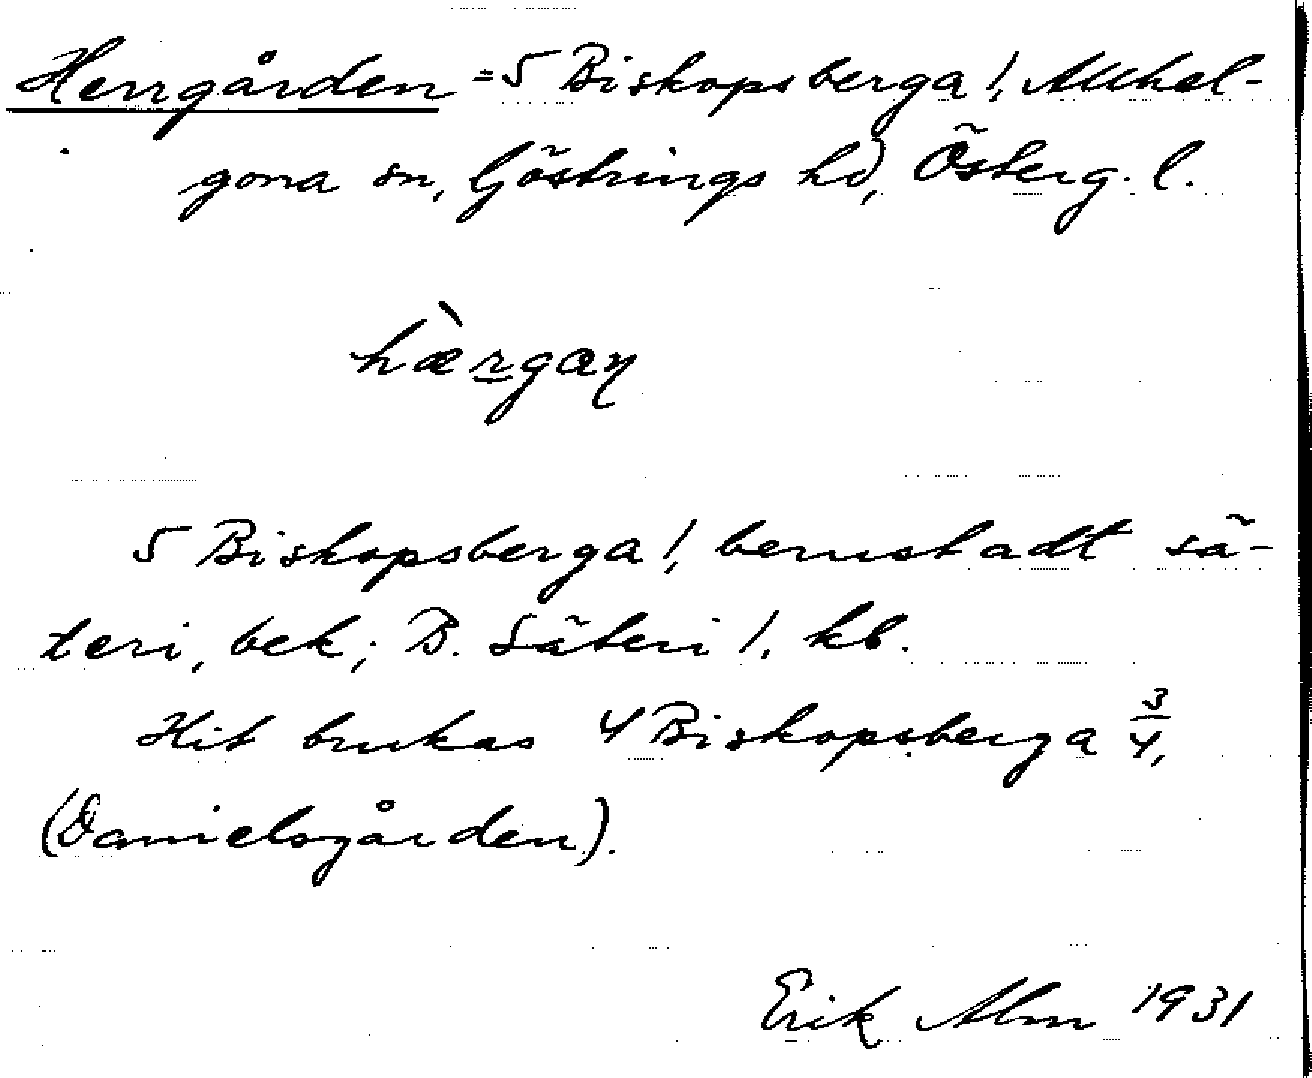 Herrgården = 5 Biskopsberga 1, Allhel-
gona sn, Göstrings hd, Österg. l.
hæ̀rgaꞃ
5 Biskopsberga 1, berustadt sä-
teri, bek; B. Säteri 1. kb.
Hit brukas 4 Biskopsberga 3/4,
(Danielsgården).
Erik Alm 1931